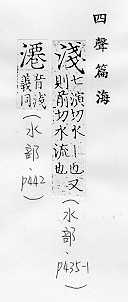 四聲篇海
淺 七演切水丨也又
則前切水流也 (水部.p435-1)
音淺
義同 (水部.p442)